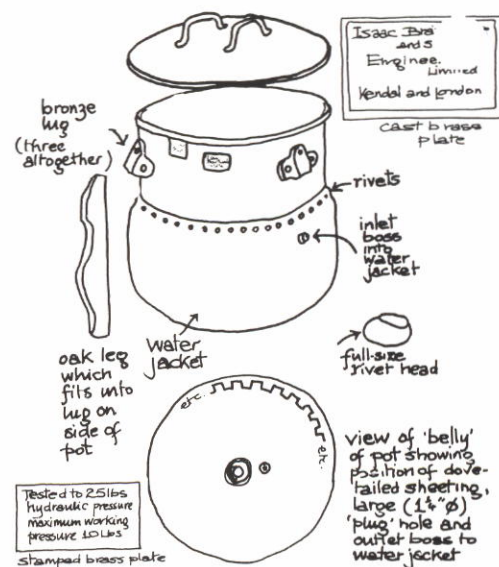 Isaac
and S
Limited
Kendal and London
cast brass
plate
bronze
lug
(three
altogether)
rivets
inlet
boss
into
water
jacket
water
jacket
oak leg
which
fits into
lug on
side of
pot
full-size
rivet head
etc.
etc.
view of 'belly'
of pot showing
position of dove-
tailed sheeting,
large (1¼"ø)
'plug' hole and
outlet boss to
water jacket
Tested to 25lbs
hydraulic pressure
maximum working
pressure 10 lbs
stamped brass plate